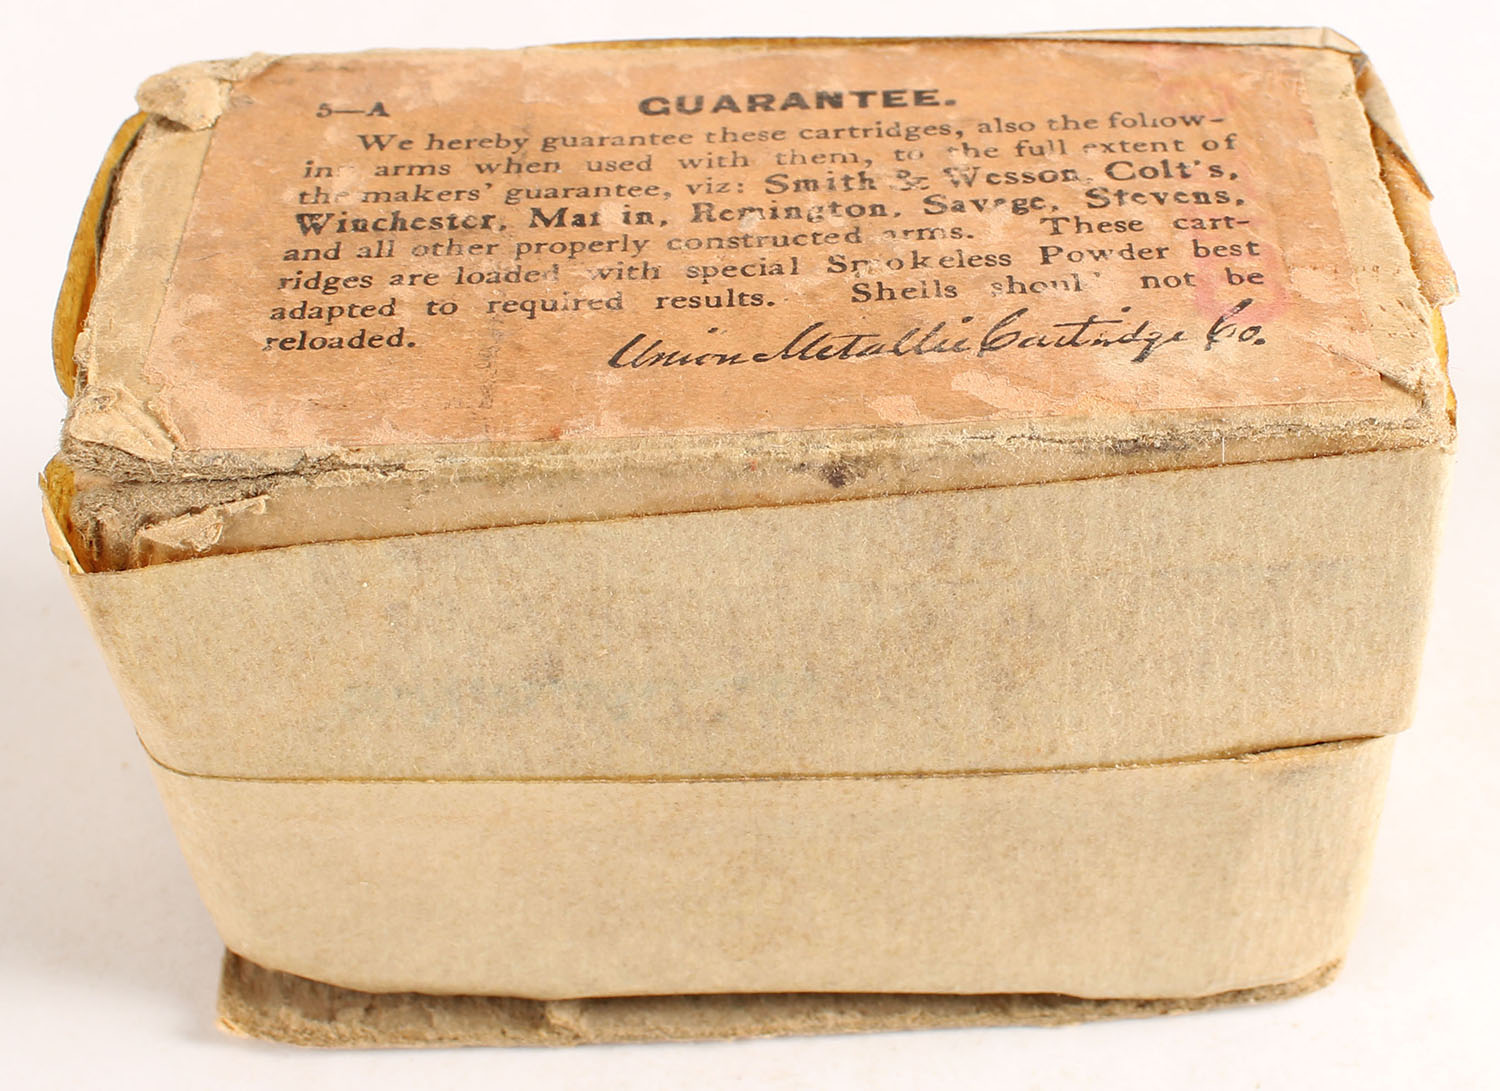 5—A GUARANTEE.
We hereby guarantee these cartridges, also the follow-
ing arms when used with them, to the full extent of
the makers' guarantee, viz: Smith & Wesson, Colt's,
Winchester, Marlin, Remington, Savage, Stevens,
and all other properly constructed arms. These cart-
ridges are loaded with special Smokeless Powder best
adapted to required results. Shells should not be
reloaded.
Union Metallic Cartridge Co.